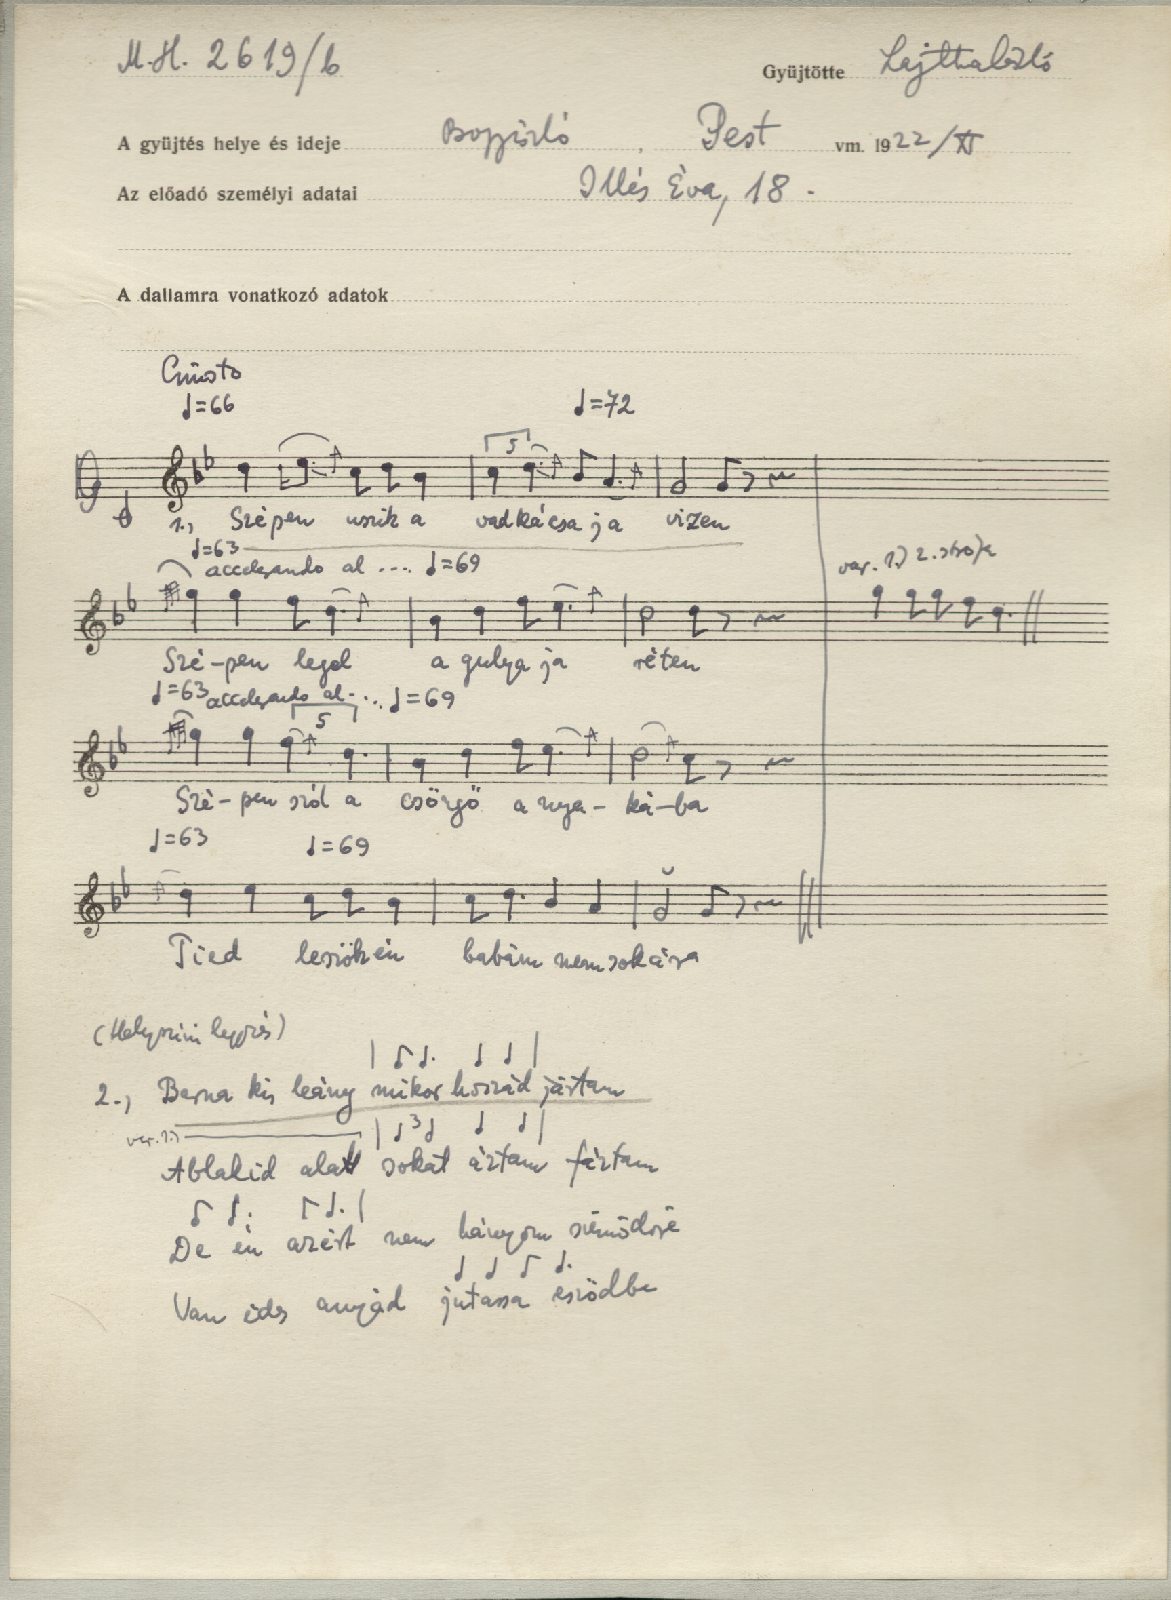 M.H. 2619/b
Gyüjtötte Lajtha László
A gyüjtés helye és ideje Bogyiszló, Pest vm. 1922/
Az előadó személyi adatai Illés Éva, 18.
A dallamra vonatkozó adatok
Giusto
♩=66 ♩=72
5
1., Szépen uszik a vadkácsa ja vizen
♩=63 accelerando al .... ♩=69
var. 1.) 2. strófa
Szé-pen legel a gulya ja réten
♩=63 accelerando al ... ♩=69
5
Szé-pen szól a csörgő a nya-ká-ba
♩=63 ♩=69
Tied leszök én babám nemsokára
(Helyszini lejegyzés)
2., Barna kis leány mikor hozzád jártam
var. 1.)
3
Ablakid alatt sokat áztam fáztam
De én azért nem hányom szömödré
Van édes anyád jutassa eszödbe